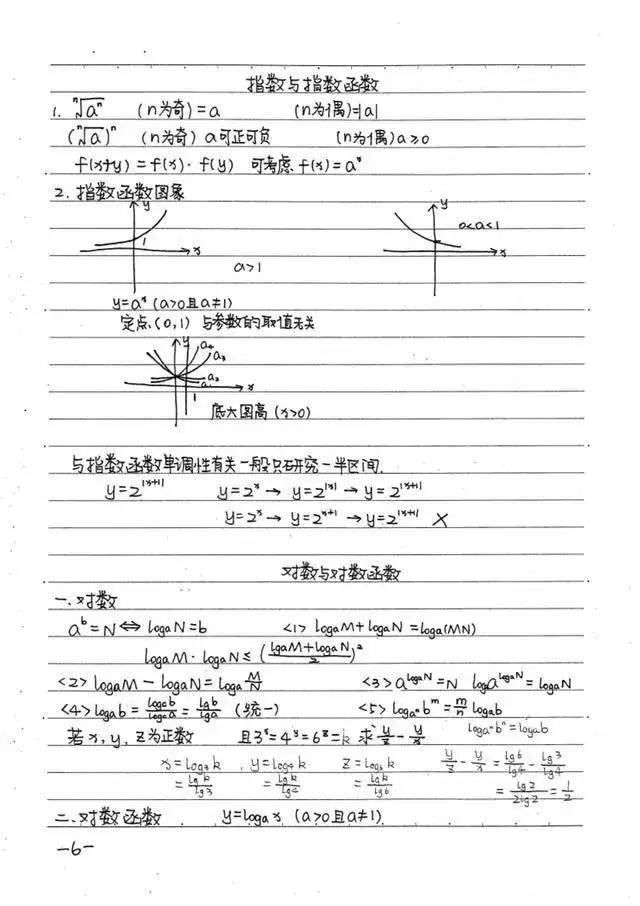 指数与指数函数
1. ⁿ√aⁿ (n为奇)=a (n为偶)=|a|
(ⁿ√a)ⁿ (n为奇) a可正可负 (n为偶) a≥0
f(x+y)=f(x)·f(y) 可考虑 f(x)=aˣ
2. 指数函数图象
y y
1 x 0<a<1 x
a>1
y=aˣ (a>0且a≠1)
定点(0,1) 与参数的取值无关
y a₄ a₃
a₂ a₁ x
1
底大图高(x>0)
与指数函数单调性有关一般只研究一半区间.
y=2^|x+1| y=2ˣ → y=2^|x| → y=2^|x+1|
y=2ˣ → y=2^x+1 → y=2^|x+1| ×
对数与对数函数
一.对数
aᵇ=N⇔logaN=b <1> logaM+logaN=loga(MN)
logaM·logaN≤(lgaM+logaN/2)²
<2> logaM-logaN=loga M/N <3> a^logaN=N logₐa^logaN=logaN
<4> logab=logcb/logca=lgb/lga (统一) <5> logaⁿbᵐ=m/n logab
logaⁿbⁿ=logab
若x,y,z为正数 且3ˣ=4ʸ=6ᶻ=k 求y/z-y/x
x=log₃k y=log₄k z=log₆k y/z-y/x=lg6/lg4-lg3/lg4
=lgk/lg3 =lgk/lg4 =lgk/lg6 =lg2/2lg2=1/2
二.对数函数 y=logax (a>0且a≠1)
-6-